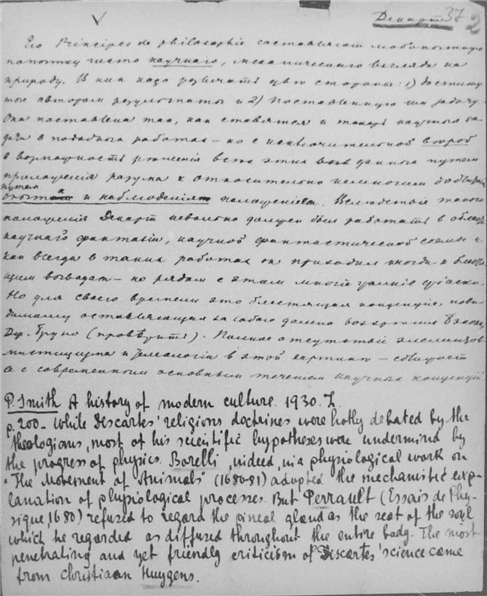 Декарт 37 2
Его Principes de philosophie составляют любопытную
попытку чисто научного, механического взгляда на
природу. В них надо различать две стороны: 1) достигну
тые автором результаты и 2) поставленную им задачу.
Она поставлена так, как ставятся и теперь научные за
дачи в подобных работах – но с исключительной верой
в возможность решения всех этих данных путем
приложения разума к относительно немногим добытым
путем
опыта и наблюдения положениям. Вследствие такого
положения Декарт невольно должен был работать в области
научной фантазии, научной фантастической схемы и
как всегда в таких работах он приходил иногда к блестя
щим выводам – но рядом с этим многие
Но для своего времени это блестящая концепция, пови
димому оставляющая за собою далеко воззрения Бэкона,
Дж. Бруно (проверить). Полное отсутствие элементов
мистицизма и в этой картине –
ее с современным основным течением научных концепций
P. Smith A history of modern culture. 1930. I.
p. 200. While Descartes' religions doctrines were hotly debated by the
theologians, most of his scientific hypotheses were undermind by
the progress of physics. Borelli, indeed, in a physiological work on
"The Movement of Animals" (1680-81) adopted the mechanistic exp-
lanation of physiological processes. But Perrault (Essais de Phy-
sique, 1680) refused to regard the pineal gland as the seat of the soul
which he regarded as diffused throughout the entire body. The most
penetrating and yet friendly criticism of Descartes' science came
from Christiaan Huygens.